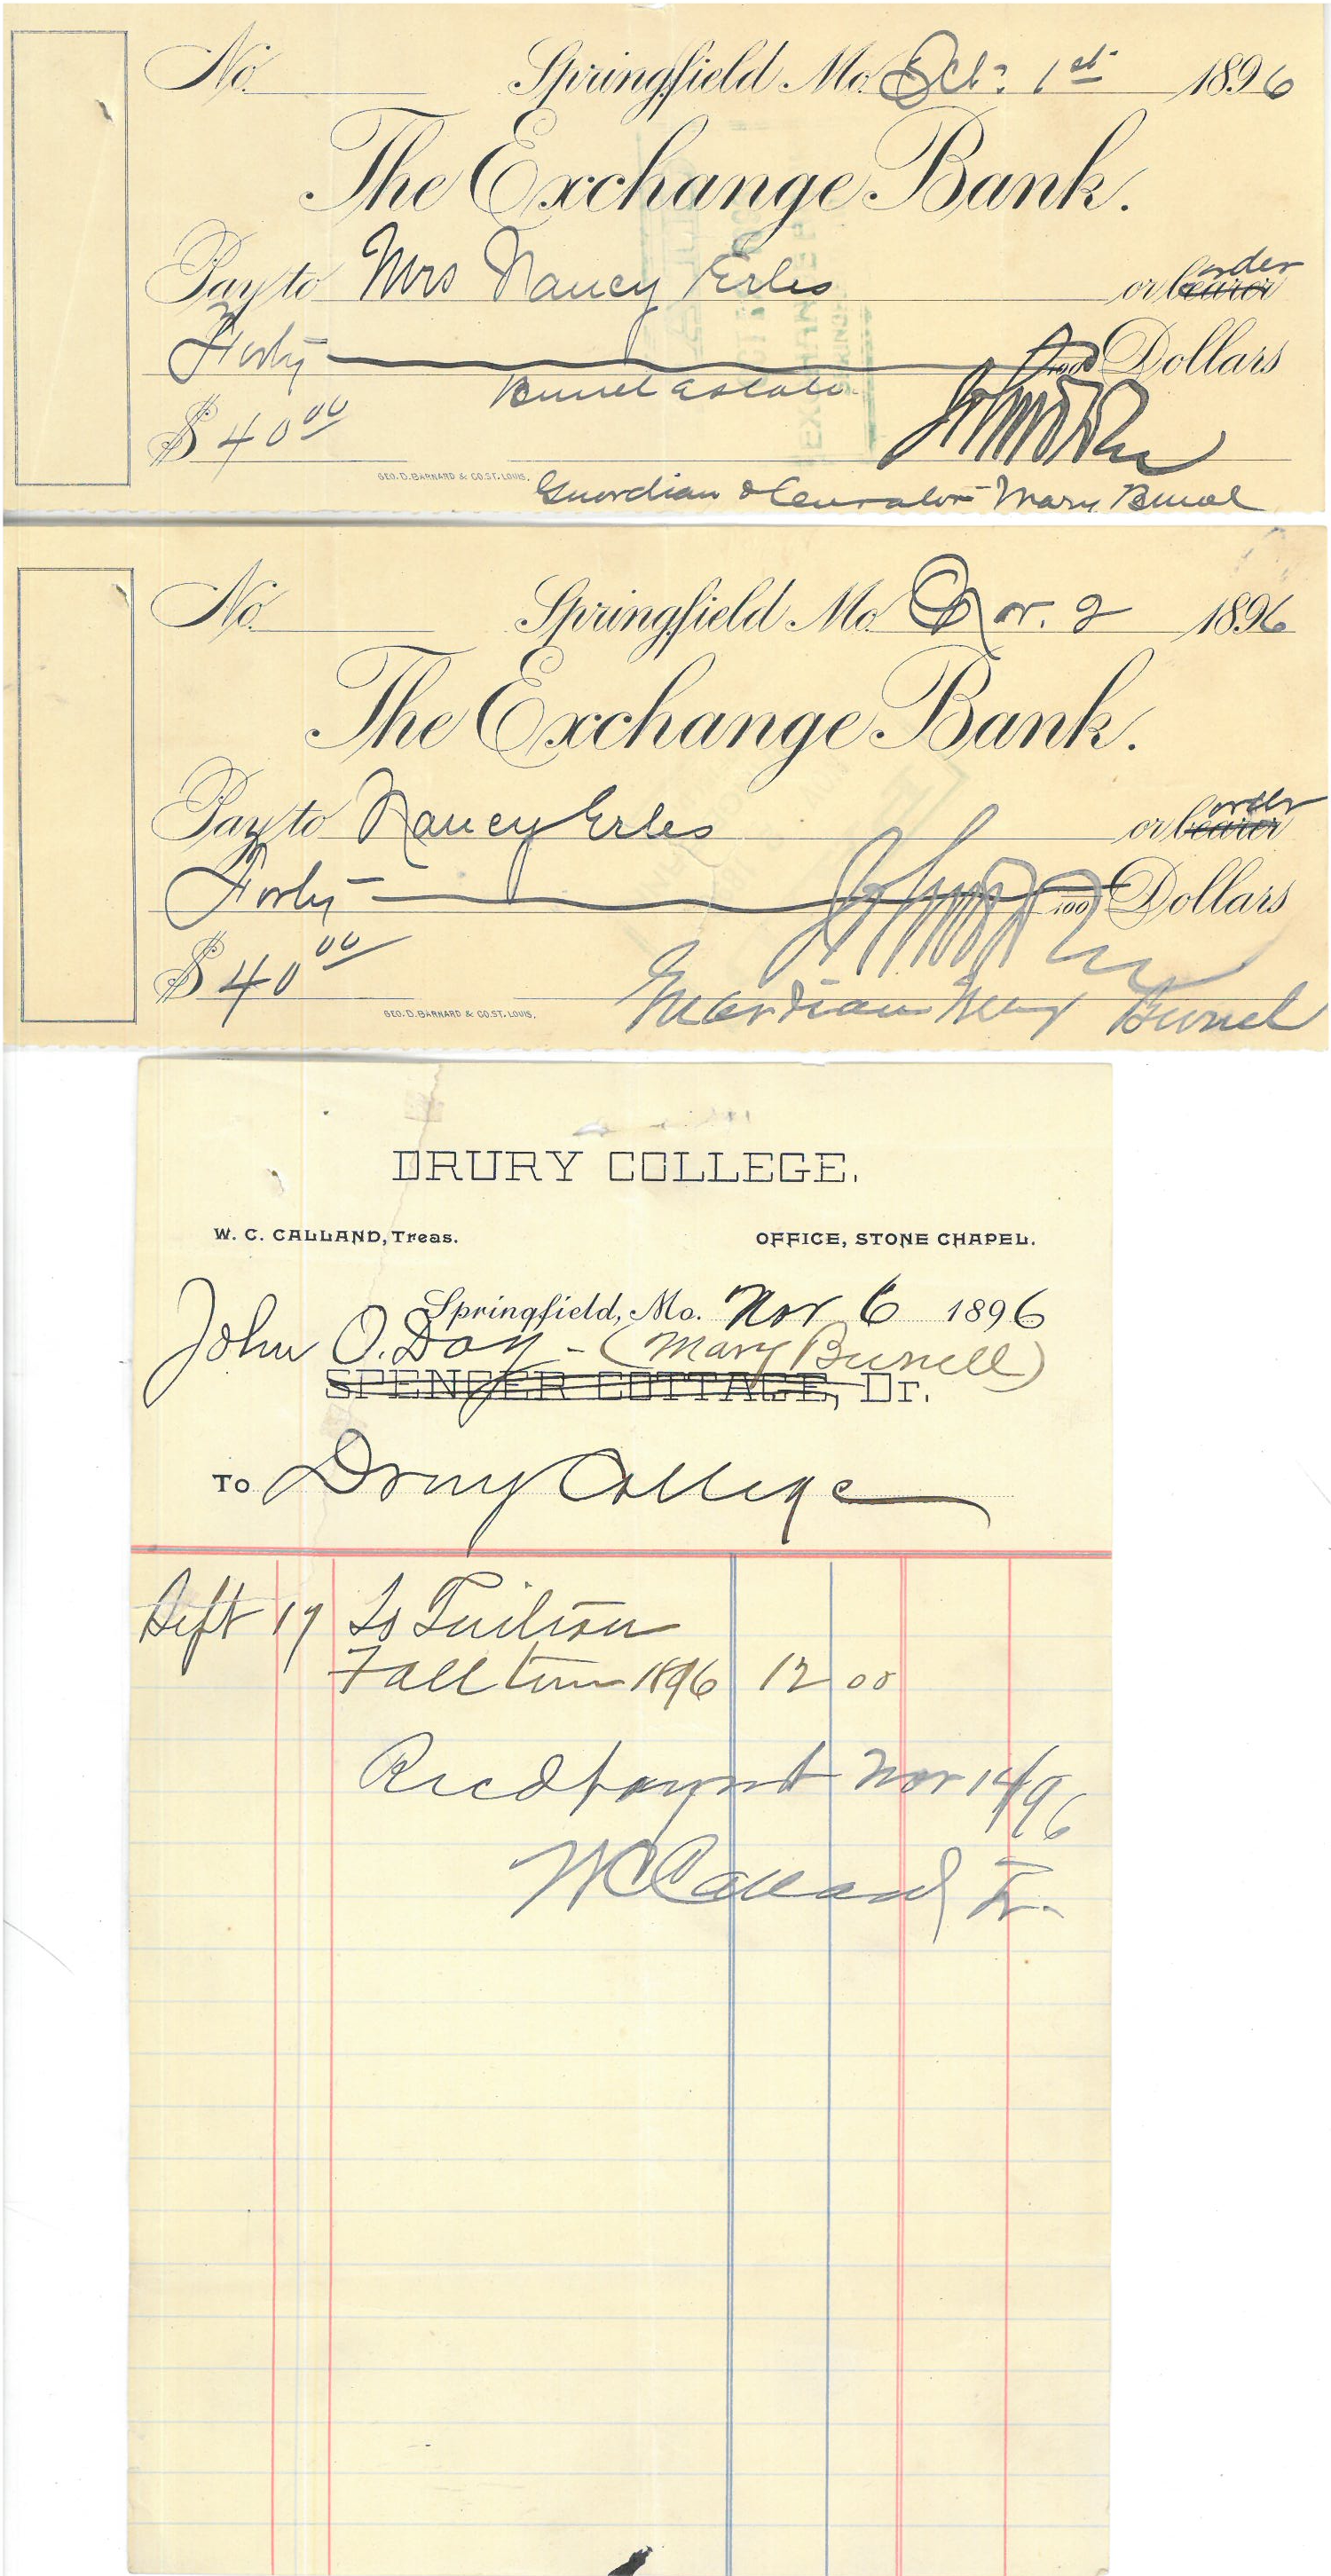 No. Springfield Mo. Oct. 1st 1896
The Exchange Bank.
Pay to Mrs Nancy Erles or bearer order
Forty 100 Dollars
Burrel Estate
$ 40 00
GEO. D. BARNARD & CO. ST. LOUIS.
Guardian & Curator Mary Burrel
No. Springfield Mo. Nov. 2 1896
The Exchange Bank.
Pay to Nancy Erles or bearer order
Forty 100 Dollars
$ 40 00
GEO. D. BARNARD & CO. ST. LOUIS.
Guardian Mary Burrel
DRURY COLLEGE.
W. C. CALLAND, Treas. OFFICE, STONE CHAPEL.
Springfield, Mo. Nov 6 1896
John O. Day - (Mary Burrell)
SPENCER COTTAGE, Dr.
To Drury College
Sept 17 To Tuition
Fall term 1896 12 00
Recd paymnt Nov 14/96
W C Calland Tr.